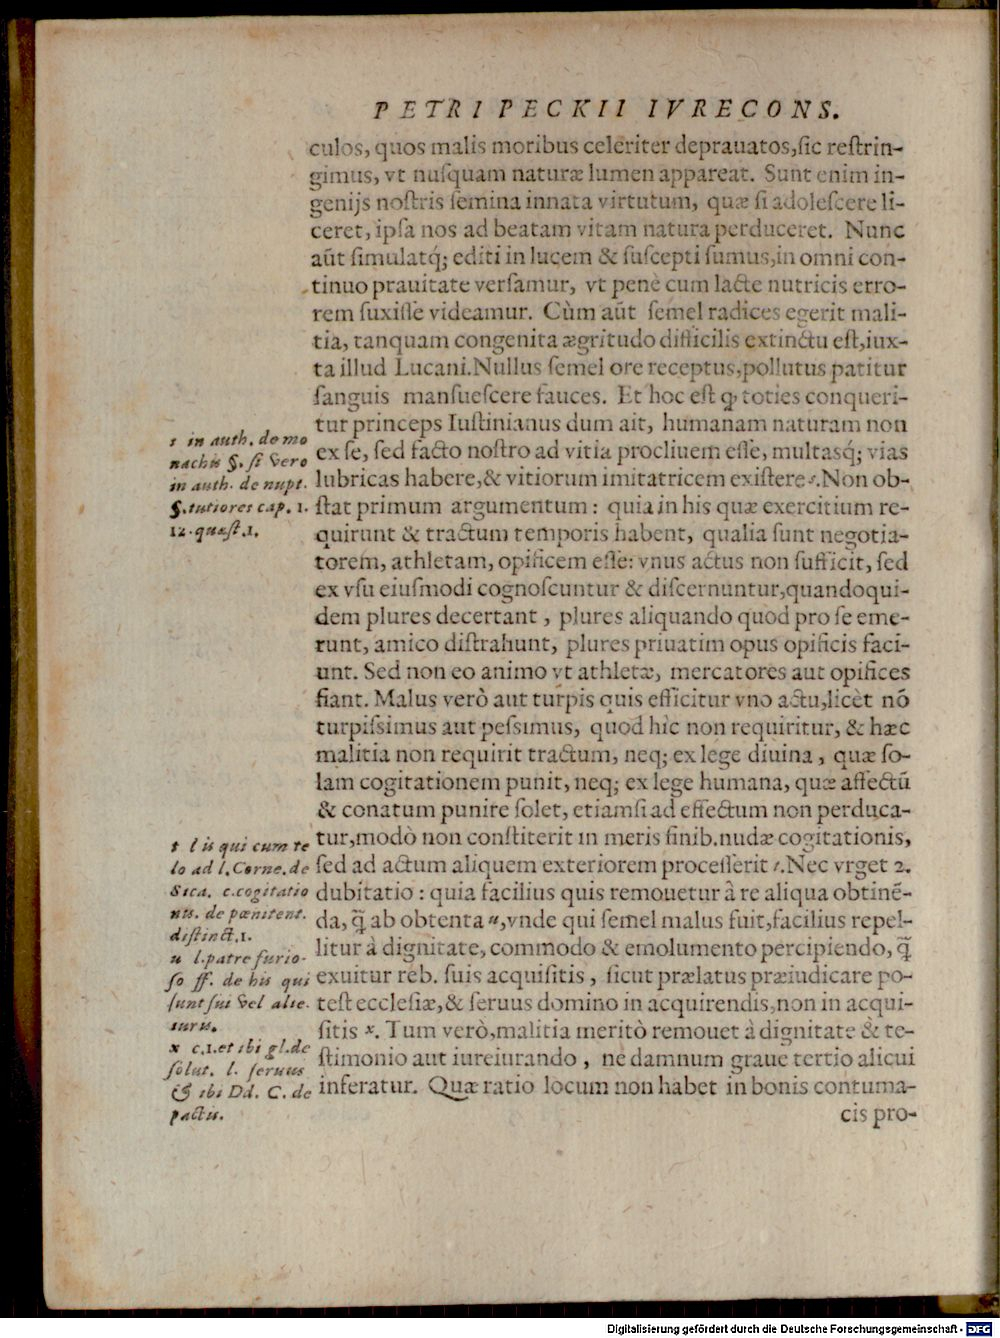 PETRI PECKII IVRECONS.
culos, quos malis moribus celeriter deprauatos, sic restrin-
gimus, vt nusquam naturæ lumen appareat. Sunt enim in-
genijs nostris semina innata virtutum, quæ si adolescere li-
ceret, ipsa nos ad beatam vitam natura perduceret. Nunc
aūt simulatq́; editi in lucem & suscepti sumus, in omni con-
tinuo prauitate versamur, vt penè cum lacte nutricis erro-
rem suxisse videamur. Cùm aūt semel radices egerit mali-
tia, tanquam congenita ægritudo difficilis extinctu est, iux-
ta illud Lucani. Nullus semel ore receptus, pollutus patitur
sanguis mansuescere fauces. Et hoc est ꝙ toties conqueri-
tur princeps Iustinianus dum ait, humanam naturam non
ex se, sed facto nostro ad vitia procliuem esse, multasq́; vias
lubricas habere, & vitiorum imitatricem existere s. Non ob-
stat primum argumentum: quia in his quæ exercitium re-
quirunt & tractum temporis habent, qualia sunt negotia-
torem, athletam, opificem esse: vnus actus non sufficit, sed
ex vsu eiusmodi cognoscuntur & discernuntur, quandoqui-
dem plures decertant, plures aliquando quod pro se eme-
runt, amico distrahunt, plures priuatim opus opificis faci-
unt. Sed non eo animo vt athletæ, mercatores aut opifices
fiant. Malus verò aut turpis quis efficitur vno actu, licèt nō
turpissimus aut pessimus, quod hîc non requiritur, & hæc
malitia non requirit tractum, neq; ex lege diuina, quæ so-
lam cogitationem punit, neq; ex lege humana, quæ affectū
& conatum punire solet, etiamsi ad effectum non perduca-
tur, modò non constiterit in meris finib. nudæ cogitationis,
sed ad actum aliquem exteriorem processerit t. Nec vrget 2.
dubitatio: quia facilius quis remouetur à re aliqua obtinē-
da, q̃ ab obtenta u, vnde qui semel malus fuit, facilius repel-
litur à dignitate, commodo & emolumento percipiendo, q̃
exuitur reb. suis acquisitis, sicut prælatus præiudicare po-
test ecclesiæ, & seruus domino in acquirendis, non in acqui-
sitis x. Tum verò, malitia meritò remouet à dignitate & te-
stimonio aut iureiurando, ne damnum graue tertio alicui
inferatur. Quæ ratio locum non habet in bonis contuma-
cis pro-
s in auth. de mo
nachis §. si vero
in auth. de nupt.
§. tutiores cap. 1.
12. quæst. 1.
t l is qui cum te
lo ad l. Corne. de
Sica. c. cogitatio
nis. de pœnitent.
distinct. 1.
u l. patre furio-
so ff. de his qui
sunt sui vel alie.
iuris.
x c. 1. et ibi gl. de
solut. l. seruus
& ibi Dd. C. de
pactis.
Digitalisierung gefördert durch die Deutsche Forschungsgemeinschaft - DFG